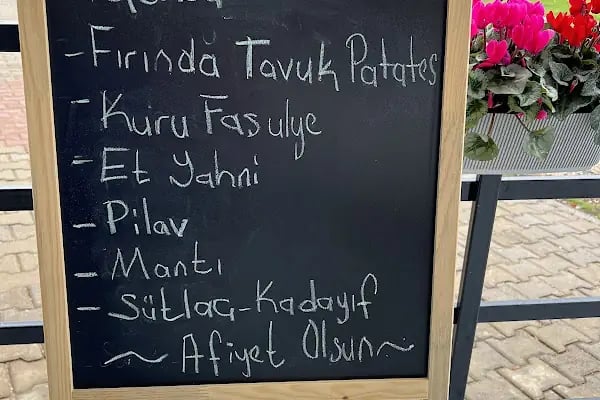 - Fırında Tavuk Patates
- Kuru Fasulye
- Et Yahni
- Pilav
- Mantı
- Sütlaç-Kadayıf
~ Afiyet Olsun ~